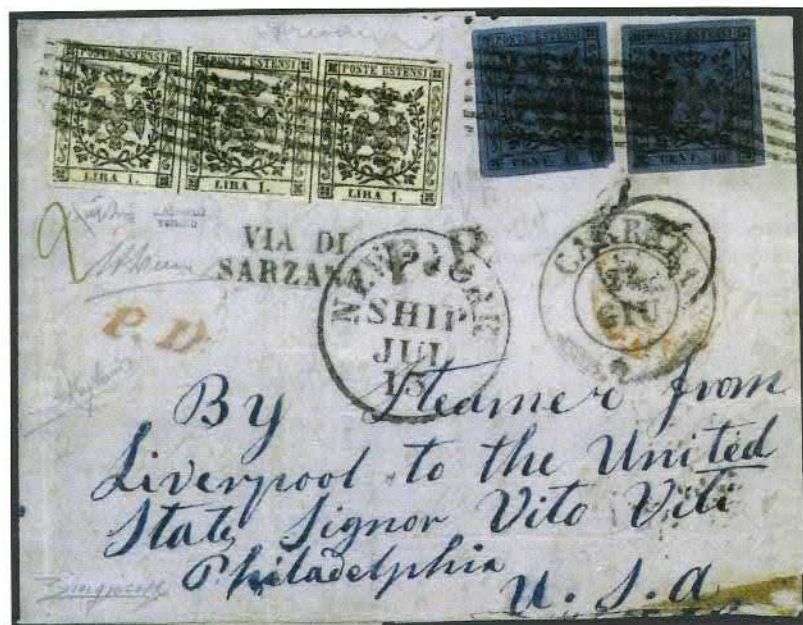 POSTE ESTENSI POSTE ESTENSI POSTE ESTENSI
LIRA 1. LIRA 1. LIRA 1.
POSTE ESTENSI POSTE ESTENSI
CENT. 40 CENT. 40
VIA DI
SARZANA
P. D.
NEW YORK
SHIP
JUL
15
CARRARA
GIU
By Steamer from
Liverpool to the United
State Signor Vito Viti
Philadelphia
U. S. a